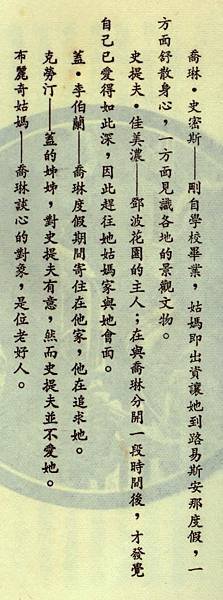 喬琳·史密斯——剛自學校畢業，姑媽即出資讓她到路易斯安那度假，一
方面舒散身心，一方面見識各地的景觀文物。
史提夫·佳美濃——鄧波花園的主人；在與喬琳分開一段時間後，才發覺
自己已愛得如此深，因此趕往她姑媽家與她會面。
蓋·李伯蘭——喬琳度假期間寄住在他家，他在追求她。
克勞汀——蓋的姊姊，對史提夫有意，然而史提夫並不愛她。
布麗奇姑媽——喬琳談心的對象，是位老好人。